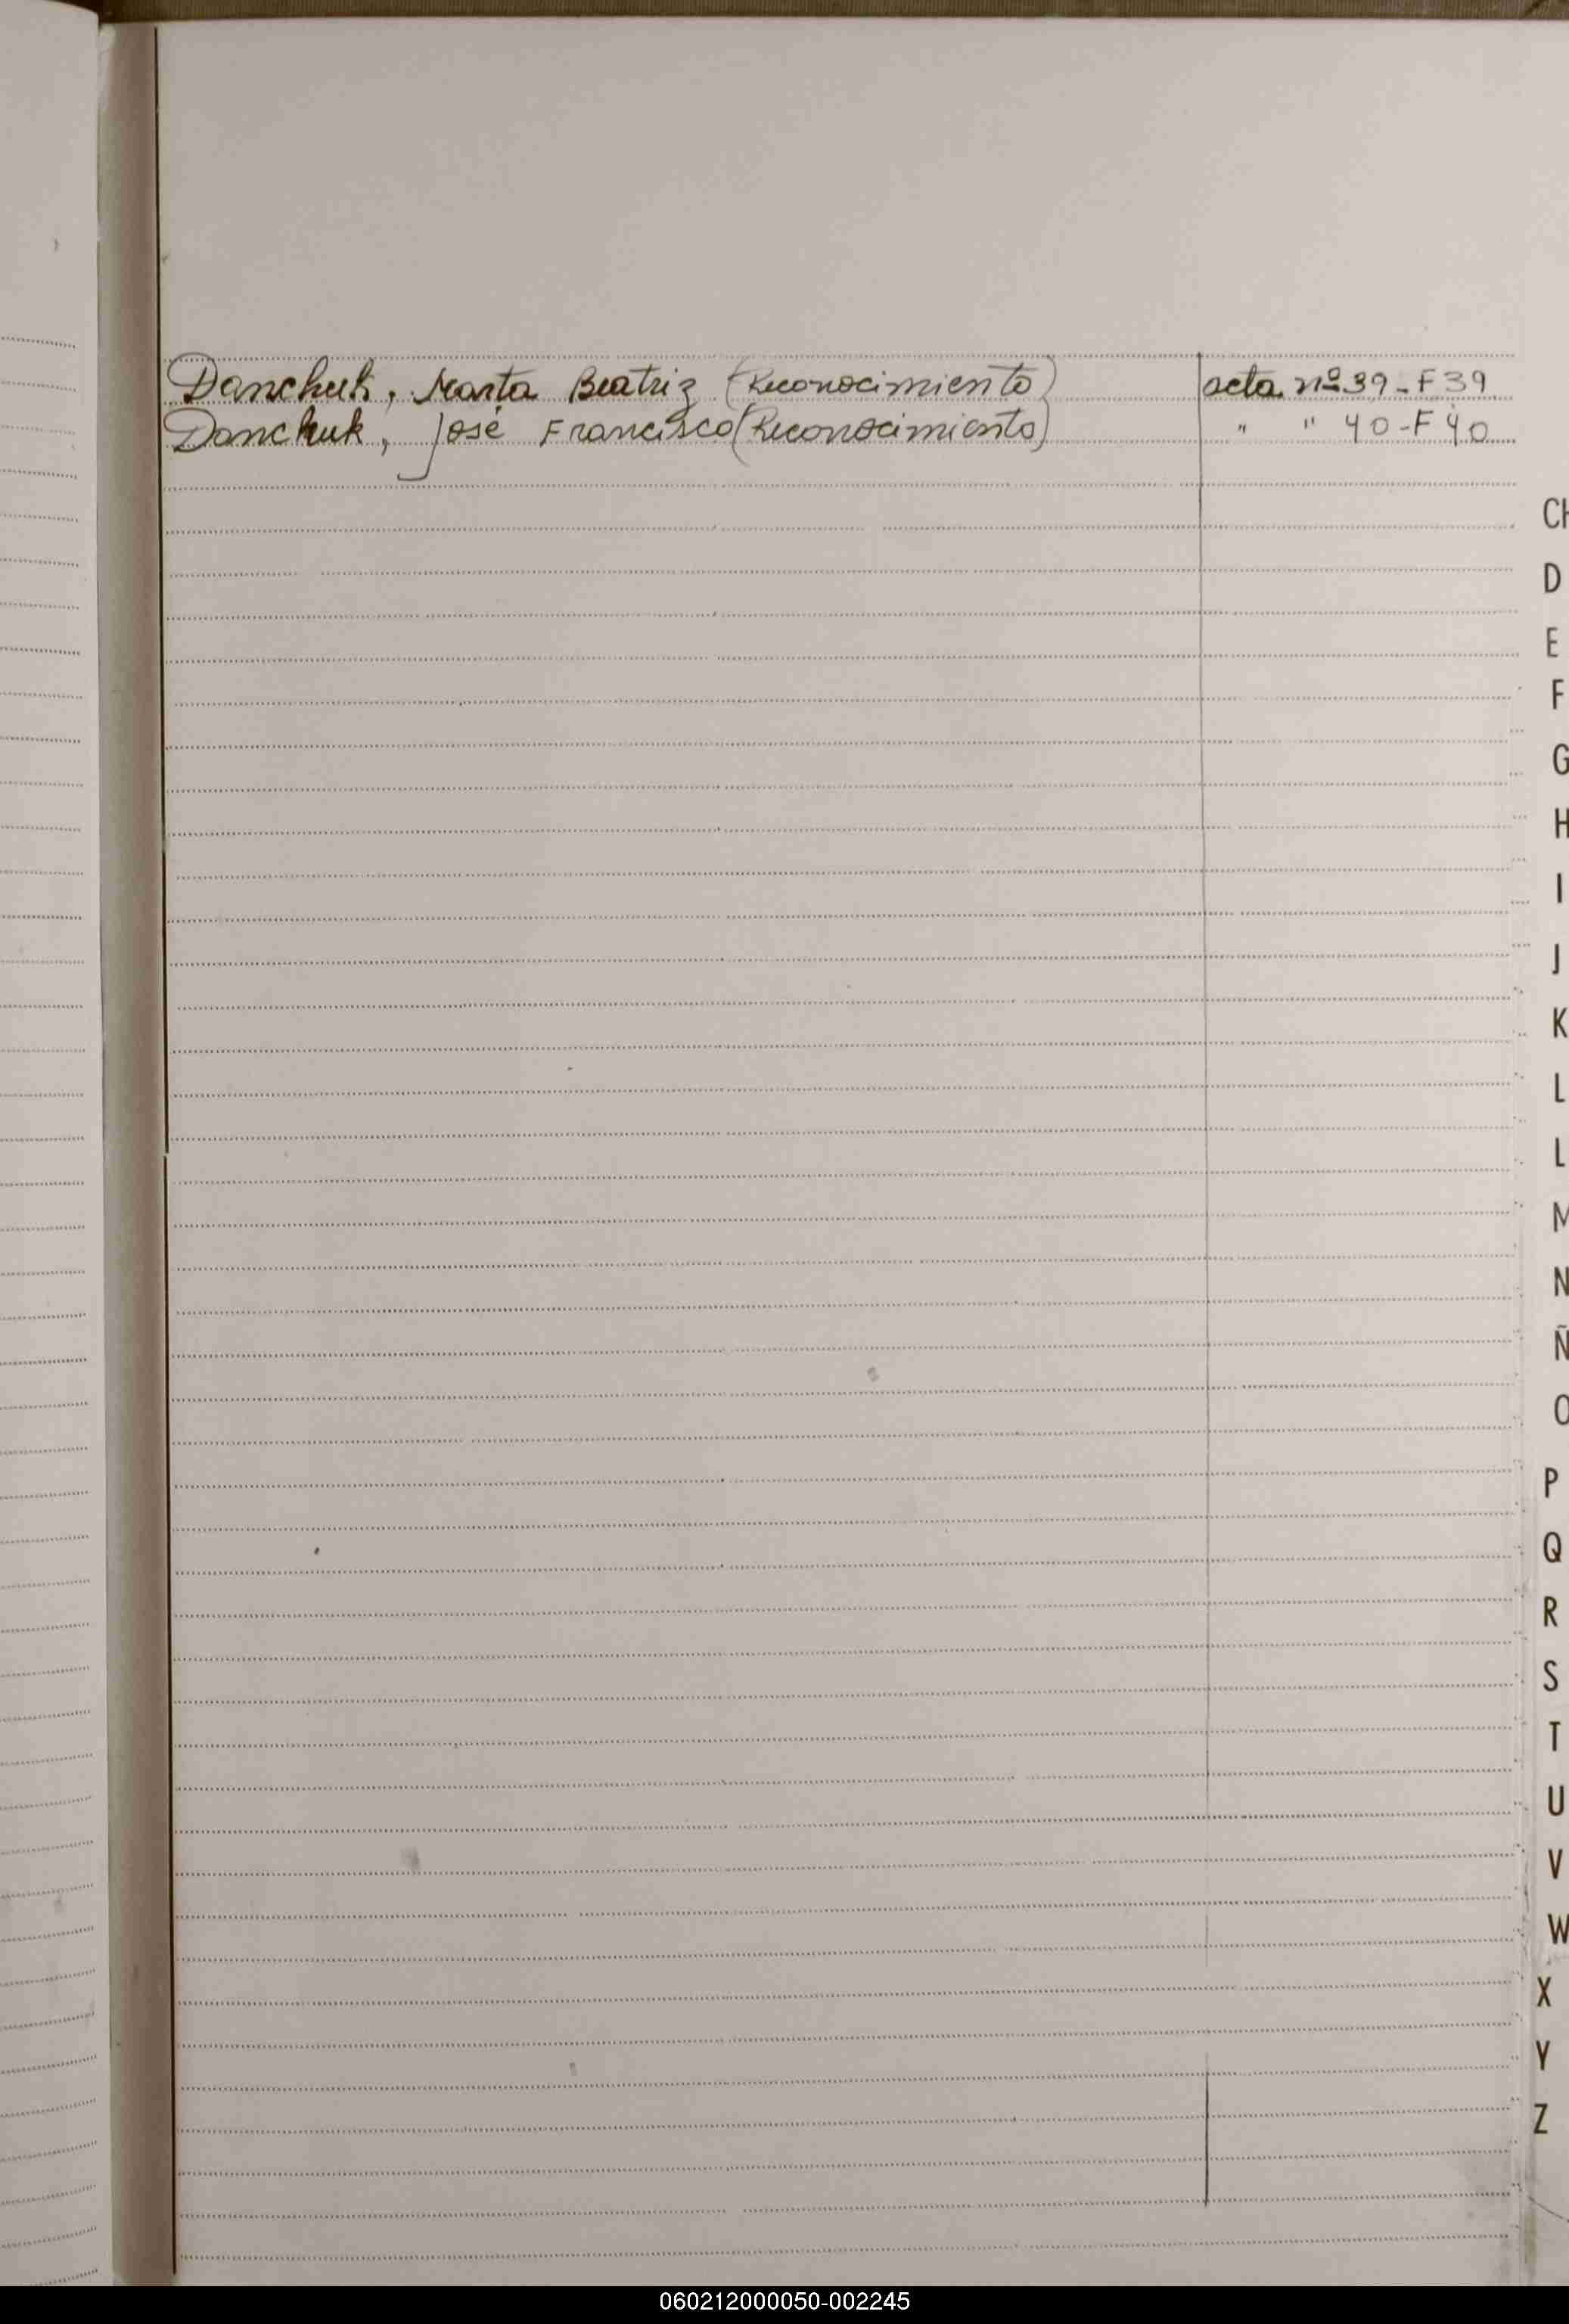 Danchuk, Marta Beatriz (Reconocimiento) acta nº 39 - F 39
Danchuk, José Francisco (Reconocimiento) " " 40 - F 40
CH
D
E
F
G
H
I
J
K
L
L
M
N
Ñ
O
P
Q
R
S
T
U
V
W
X
Y
Z
060212000050-002245